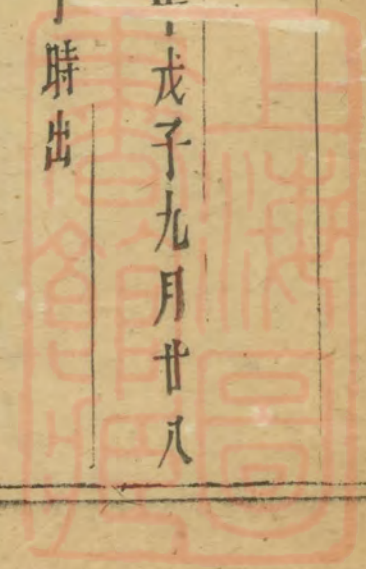 戊子九月廿八
時出
上海圖書館藏